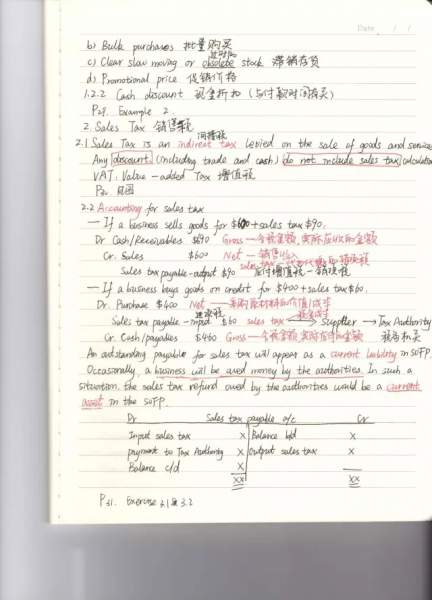 Date / /
b) Bulk purchases 批量购买
过时的
c) Clear slow moving or obsolete stock 滞销存货
d) Promotional price 促销价格
1.2.2 Cash discount 现金折扣 (与付款时间有关)
P29. Example 2.
2. Sales Tax 销售税
间接税
2.1 Sales Tax is an indirect tax levied on the sale of goods and services
Any discount (including trade and cash) do not include sales tax calculation
VAT: Value-added Tax 增值税
P30.
2.2 Accounting for sales tax
— If a business sells goods for $600 + sales tax $90.
Dr Cash/Receivables $690 Gross — 含税金额, 实际应收的金额
Cr. Sales $600 Net — 销售收入
sales tax —
Sales tax payable-output $90 应付增值税—销项税
— If a business buys goods on credit for $400 + sales tax $60.
Dr. Purchase $400 Net — 采购原材料的价值/成本
进项税
Sales tax payable-input $60 sales tax → Supplier → Tax Authority
Cr. Cash/payables $460 Gross — 含税金额, 实际应付的金额 税务机关
An outstanding payable for sales tax will appear as a current liability in SOFP.
Occasionally, a business will be owed money by the authorities. In such a
situation, the sales tax refund owed by the authorities would be a current
asset in the SOFP.
Dr Sales tax payable a/c Cr
Input sales tax X Balance b/d X
payment to Tax Authority X Output sales tax X
Balance c/d X
XX XX
P31. Exercise 3.1 3.2